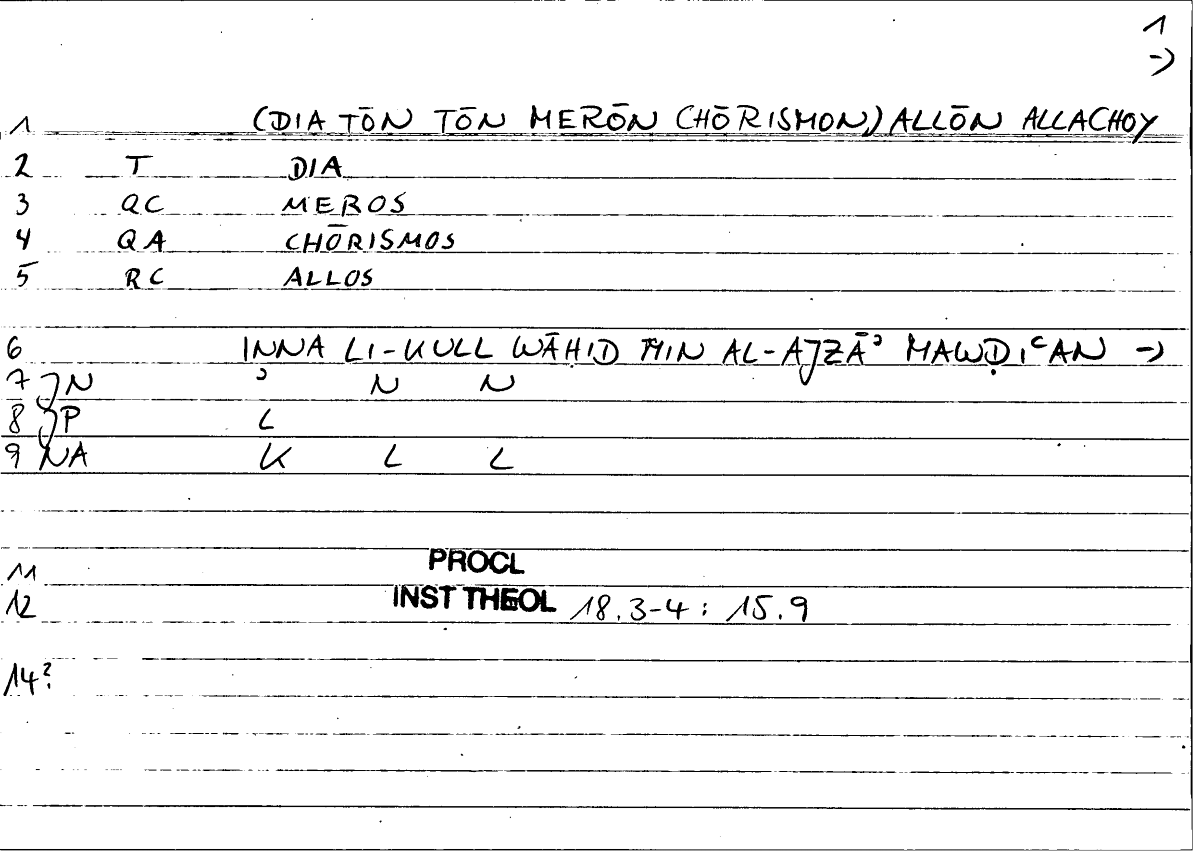 1
->
1 (DIA TŌN TŌN MERŌN CHŌRISMON) ALLŌN ALLACHOY
2 T DIA
3 QC MEROS
4 QA CHŌRISMOS
5 RC ALLOS
6 INNA LI-KULL WĀḤID MIN AL-AJZĀʾ MAWḌIʿAN ->
7 } N ʾ N N
8 } P L
9 NA K L L
11 PROCL
12 INST THEOL 18.3-4 : 15.9
14?